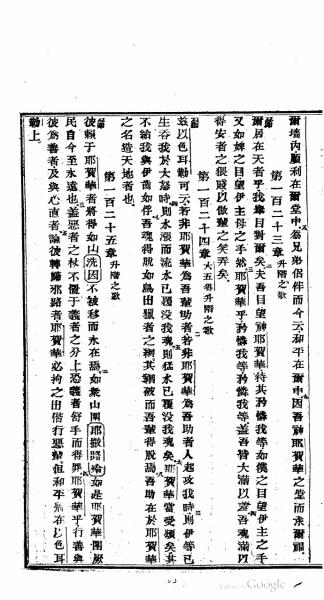 爾墻內順利在爾堂中爲兄弟侶伴而今云和平在爾中因吾神耶賀華之堂而求爾福
第一百二十三章 升階之歌
爾居在天者乎我舉目對爾矣夫吾目望神耶賀華待其矜憐我等如僕之目望伊主之手
又如婢之目望伊主母之手然耶賀華乎矜憐我等矜憐我等蓋吾皆大滿以羞吾魂滿以
得安者之猥賤以傲輩之笑弄矣
第一百二十四章 大五得升階之歌
茲以色耳勒可云若非耶賀華爲吾輩助者若非耶賀華爲吾助者人起攻我時則伊等已
生吞我於大怒時則水漲而流水已覆沒我魂則猛水已覆沒我魂矣耶賀華當受頌矣其
不給我與伊齒如俘吾魂得脫如鳥出獵者之網其網破而吾輩得脫焉吾助在於耶賀華
之名造天地者也
第一百二十五章 升階之歌
彼賴于耶賀華者將得如山洗因不被移而永在焉如衆山圍耶撒路冷如是耶賀華圍厥
民自今至永遠也蓋惡者之杖不置于義者之分上恐義者舒手而得罪耶賀華乎行善與
彼爲善者及與心直者論彼轉歸邪路者耶賀華必拘之出偕行惡輩但和平焉在以色耳
勒上
Google